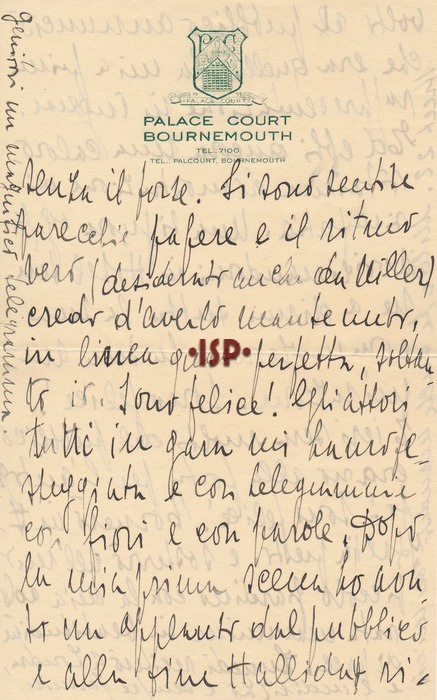 PALACE COURT
PALACE COURT
BOURNEMOUTH
TEL: 7100
TEL.: PALCOURT, BOURNEMOUTH
senza il forse. Si sono sentite
parecchie papere e il ritmo
vero (desiderato anche da Miller)
credo d'averlo mantenuto,
in linea quasi perfetta, soltan
to io. Sono felice! Gli attori
tutti in gara mi hanno fe-
steggiata e con telegrammi e
con fiori e con parole. Dopo
la mia prima scena ho avu
to un applauso dal pubblico
e alla fine Halliday ri-
·ISP·
un telegramma.